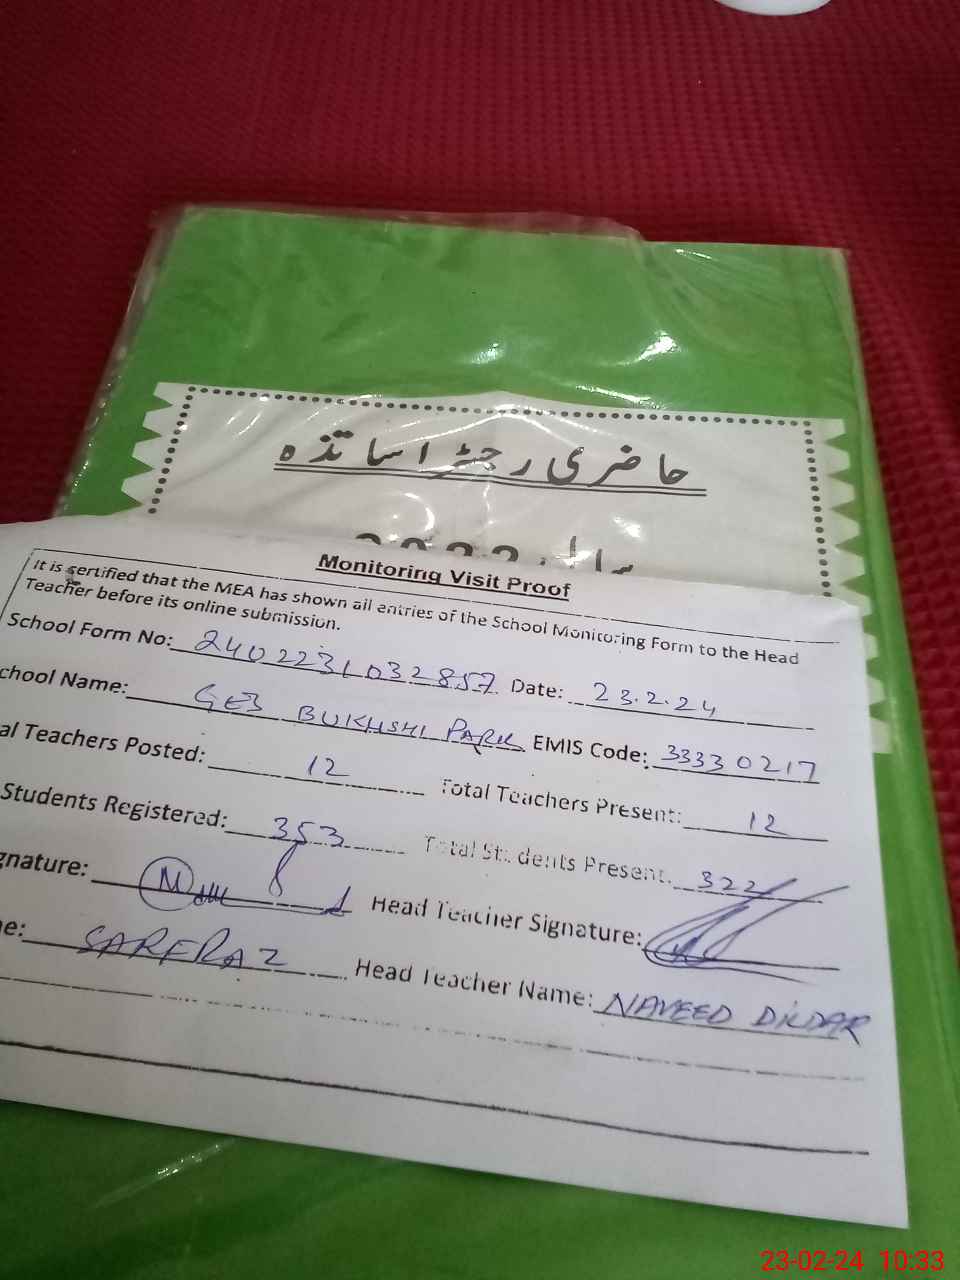 حاضری رجسٹر اساتذہ
سال 2022
Monitoring Visit Proof
It is certified that the MEA has shown all entries of the School Monitoring Form to the Head
Teacher before its online submission.
School Form No: 2402231032857 Date: 23.2.24
chool Name: GES BUKHSHI PARK EMIS Code: 33330217
al Teachers Posted: 12 Total Teachers Present: 12
Students Registered: 353 Total Students Present: 322
gnature: Head Teacher Signature:
e: SARFRAZ Head Teacher Name: NAVEED DILDAR
23-02-24 10:33